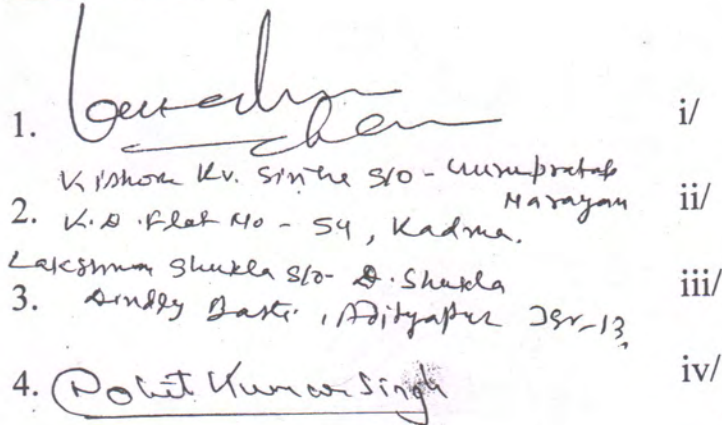 1. i/
Kishore Kr. Sinha S/O -
Narayan
2. K.D. Flat No - 54, Kadma. ii/
Lakshman Shukla S/o- D. Shukla iii/
3. Basti, Adityapur Jsr-13,
4. Rohit Kumar Singh iv/